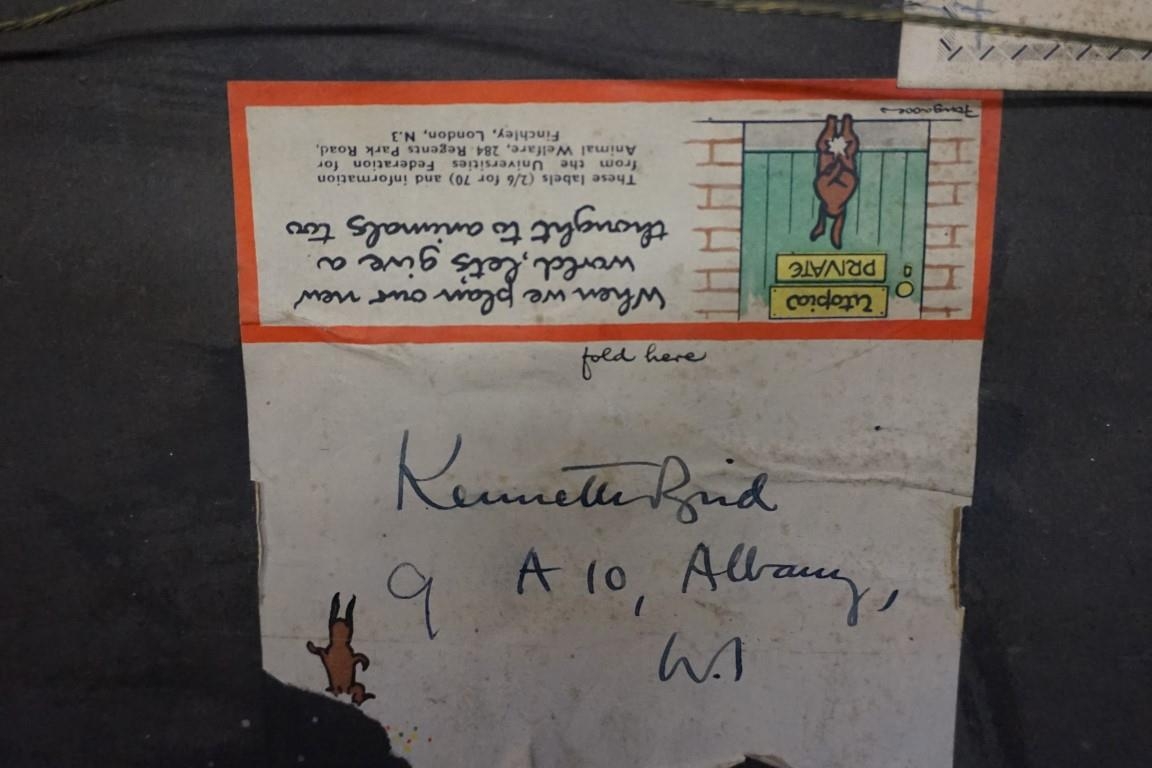 Fougasse
Utopia
PRIVATE
When we plan our new
world, let's give a
thought to animals too
These labels (2/6 for 70) and information
from the Universities Federation for
Animal Welfare, 284 Regents Park Road,
Finchley, London, N.3
fold here
Kenneth Bird
9 A 10, Albany,
W.1